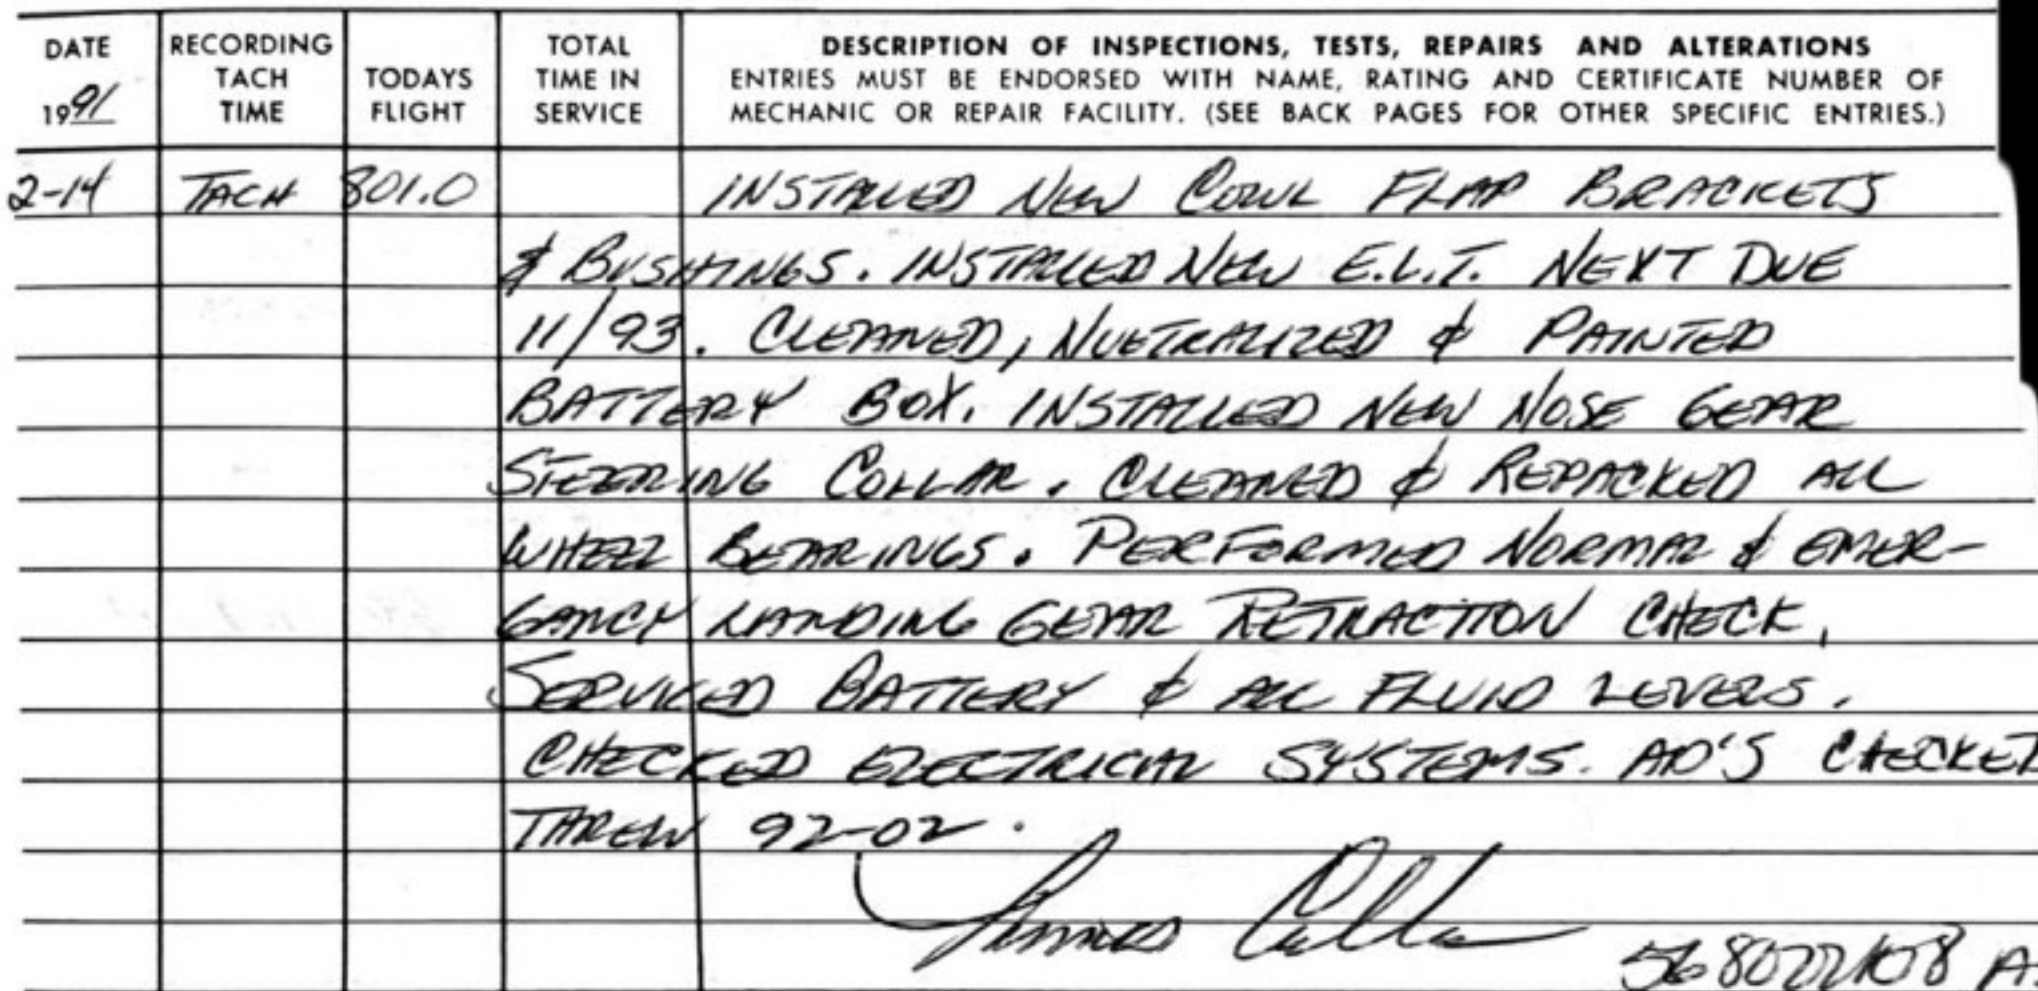 DATE 1991
RECORDING TACH TIME
TODAYS FLIGHT
TOTAL TIME IN SERVICE
DESCRIPTION OF INSPECTIONS, TESTS, REPAIRS AND ALTERATIONS
ENTRIES MUST BE ENDORSED WITH NAME, RATING AND CERTIFICATE NUMBER OF
MECHANIC OR REPAIR FACILITY. (SEE BACK PAGES FOR OTHER SPECIFIC ENTRIES.)
2-14 TACH 801.0 INSTALLED NEW COWL FLAP BRACKETS
& BUSHINGS. INSTALLED NEW E.L.T. NEXT DUE
11/93. CLEANED, NUETRALIZED & PAINTED
BATTERY BOX. INSTALLED NEW NOSE GEAR
STEERING COLLAR. CLEANED & REPACKED ALL
WHEEL BEARINGS. PERFORMED NORMAL & EMER-
GANCY LANDING GEAR RETRACTION CHECK,
SERVICED BATTERY & ALL FLUID LEVELS.
CHECKED ELECTRICAL SYSTEMS. AD'S CHECKED
THREW 92-02.